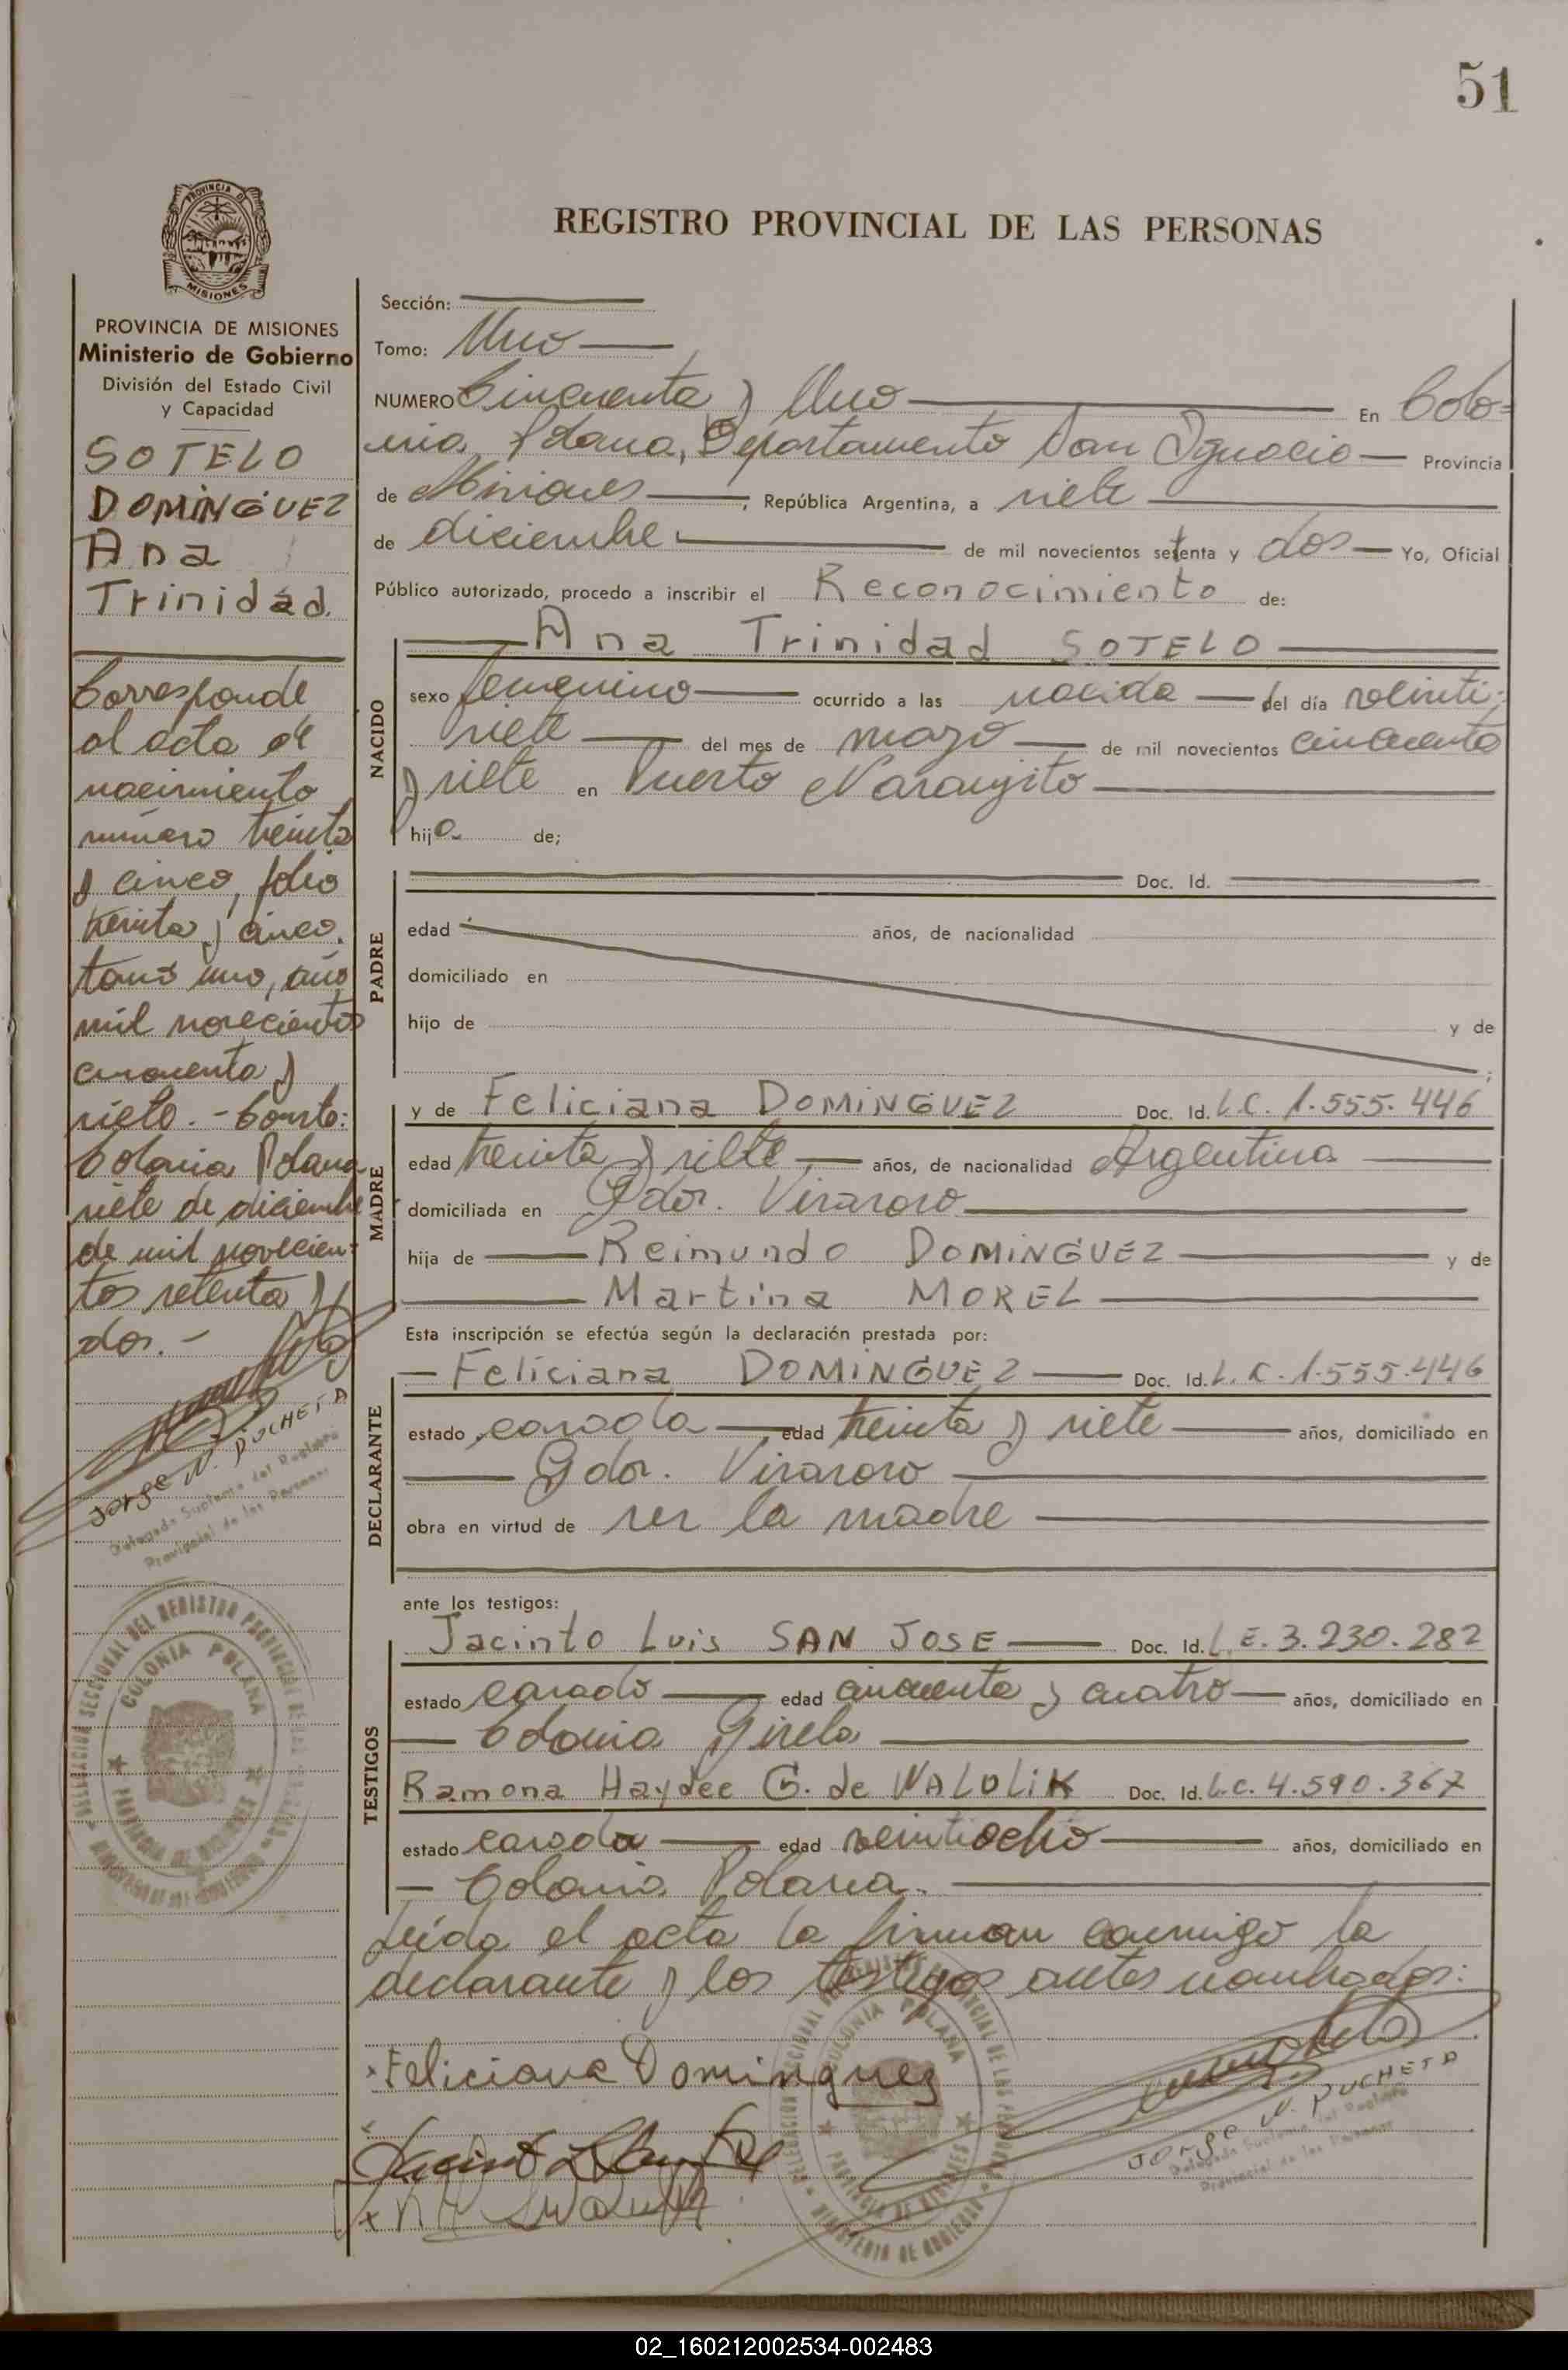 51
PROVINCIA DE
MISIONES
REGISTRO PROVINCIAL DE LAS PERSONAS
PROVINCIA DE MISIONES
Ministerio de Gobierno
División del Estado Civil
y Capacidad
SOTELO
DOMINGUEZ
Ana
Trinidad.
Corresponde
al acta de
nacimiento
número treinta
y cinco, folio
treinta y cinco,
tomo uno, año
mil novecientos
cincuenta y
siete. - Conste:
Colonia Polana
siete de diciembre
de mil novecien=
tos setenta y
dos. -
Jorge N. PUCHETA
Delegado Suplente del Registro
Provincial de las Personas
DELEGACION SECCIONAL DEL REGISTRO PROVINCIAL DE LAS PERSONAS
COLONIA POLANA
PROVINCIA DE MISIONES
MINISTERIO DE GOBIERNO
Sección:
Tomo: Uno
NUMERO Cincuenta y Uno En Colo=
nia Polana, Departamento San Ignacio Provincia
de Misiones, República Argentina, a siete
de diciembre de mil novecientos setenta y dos Yo, Oficial
Público autorizado, procedo a inscribir el Reconocimiento de:
NACIDO
Ana Trinidad SOTELO
sexo femenino ocurrido a las nacida del día veinti-
siete del mes de mayo de mil novecientos cincuenta
y siete en Puerto Naranjito
hija de;
PADRE
Doc. Id.
edad años, de nacionalidad
domiciliado en
hijo de y de
MADRE
y de Feliciana DOMINGUEZ Doc. Id. L.C. 1.555.446
edad treinta y siete años, de nacionalidad Argentina
domiciliada en Gdor. Virasoro
hija de Reimundo DOMINGUEZ y de
Martina MOREL
Esta inscripción se efectúa según la declaración prestada por:
DECLARANTE
Feliciana DOMINGUEZ Doc. Id. L.C. 1.555.446
estado casada edad treinta y siete años, domiciliado en
Gdor. Virasoro
obra en virtud de ser la madre
ante los testigos:
TESTIGOS
Jacinto Luis SAN JOSE Doc. Id. L.E. 3.230.282
estado casado edad cincuenta y cuatro años, domiciliado en
Colonia Gisela
Ramona Haydee G. de WALULIK Doc. Id. L.C. 4.590.367
estado casada edad veintiocho años, domiciliado en
Colonia Polana.
Leída el acta la firman conmigo la
declarante y los testigos antes nombrados:
Feliciana Dominguez
DELEGACION SECCIONAL DEL REGISTRO PROVINCIAL DE LAS PERSONAS
COLONIA POLANA
PROVINCIA DE MISIONES
MINISTERIO DE GOBIERNO
Jorge N. PUCHETA
Delegado Suplente del Registro
Provincial de las Personas
02_160212002534-002483